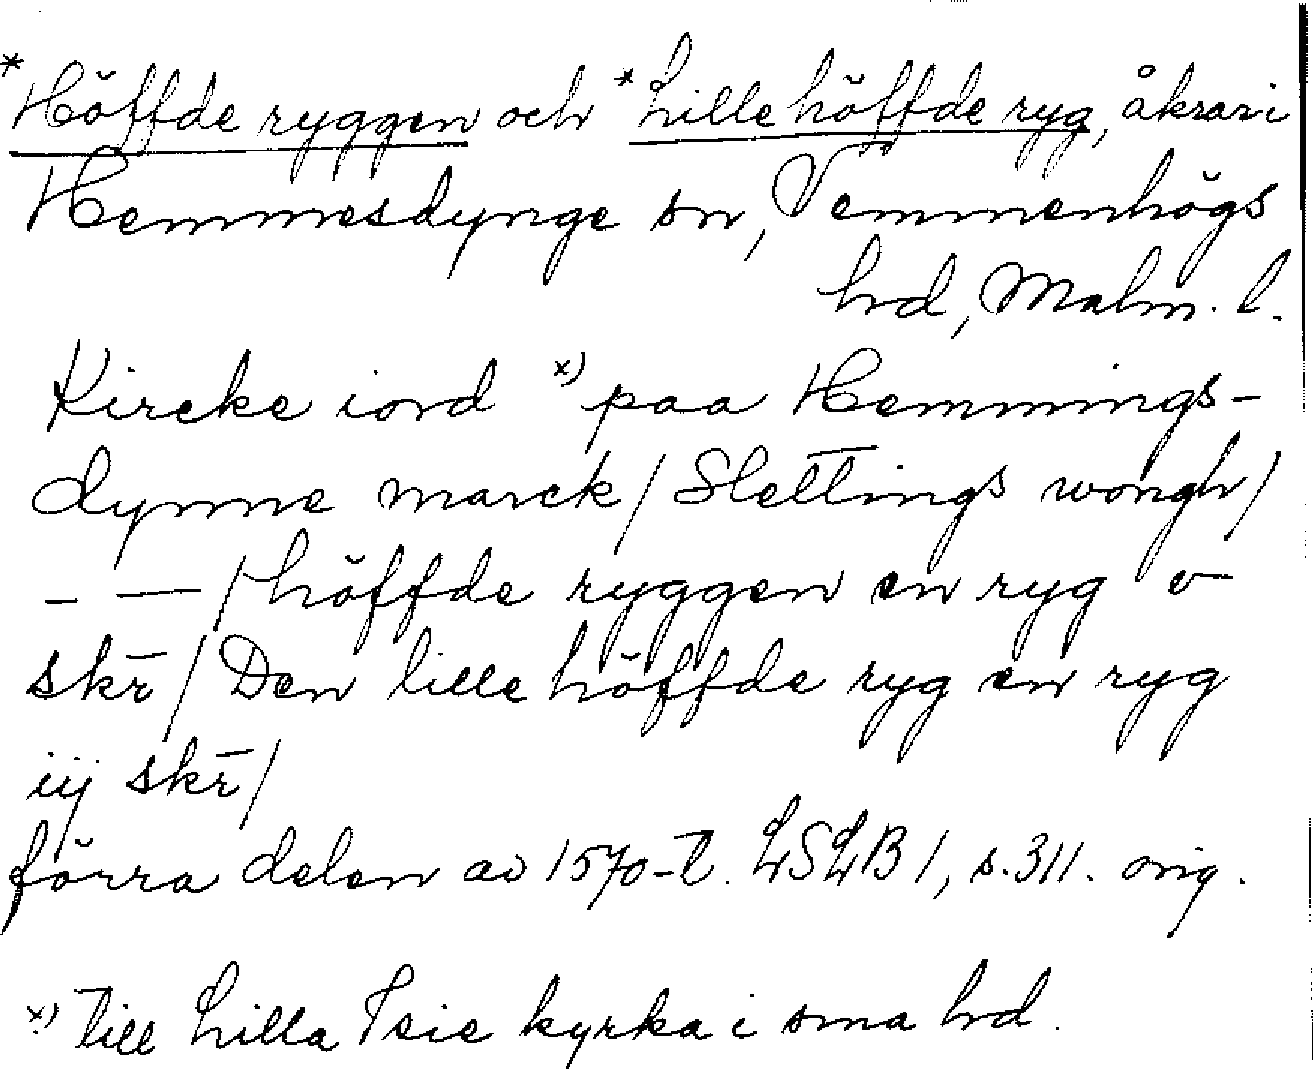 *Höffde ryggen och *Lille höffde ryg, åkrar i
Hemmesdynge sn, Vemmenhögs
hrd, Malm. l.
Kircke iord x) paa Hemmings-
dynne marck / Slettings wongh /
– — / höffde ryggen en ryg v
skr̄ / Den lille höffde ryg en ryg
iij skr̄ /
förra delen av 1570-t. LSLB 1, s. 311. orig.
x) Till Lilla Isie kyrka i sma hrd.